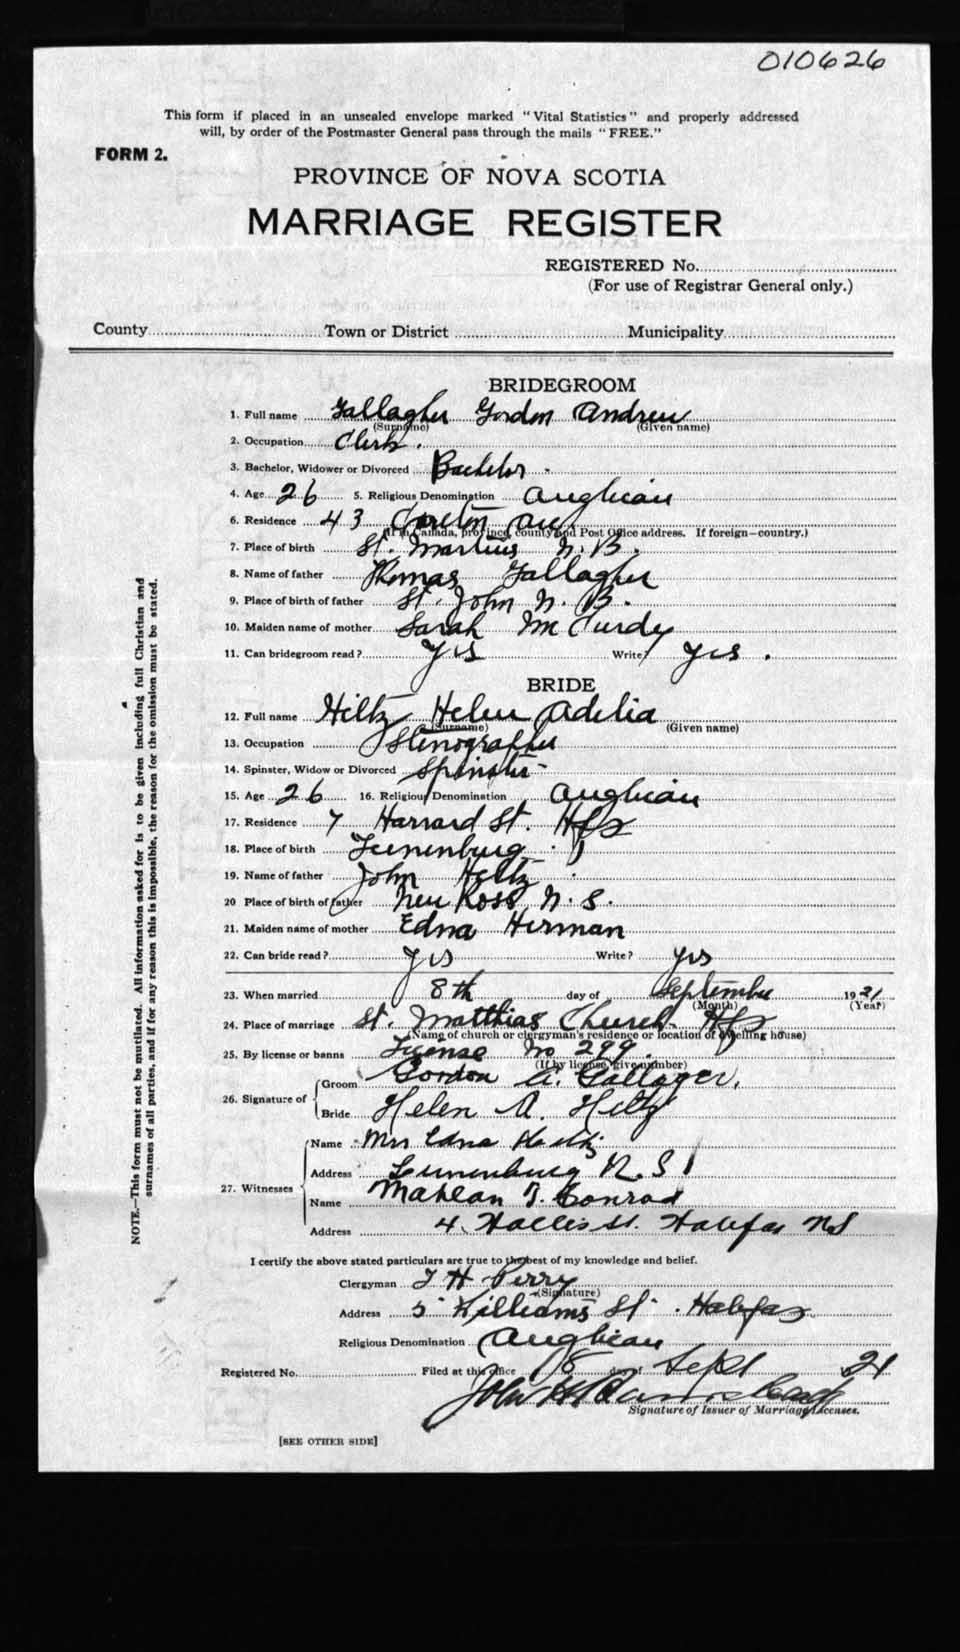 010626
This form if placed in an unsealed envelope marked "Vital Statistics" and properly addressed
will, by order of the Postmaster General pass through the mails "FREE."
FORM 2.
PROVINCE OF NOVA SCOTIA
MARRIAGE REGISTER
REGISTERED No.
(For use of Registrar General only.)
County Town or District Municipality
BRIDEGROOM
1. Full name Gallagher Gordon Andrew
(Surname) (Given name)
2. Occupation Clerk.
3. Bachelor, Widower or Divorced Bachelor
4. Age 26 5. Religious Denomination Anglican
6. Residence 43 Carleton Ave
(If in Canada, province, county and Post Office address. If foreign—country.)
7. Place of birth St. Martins N.B.
8. Name of father Thomas Gallagher
9. Place of birth of father St. John N.B.
10. Maiden name of mother Sarah McCurdy
11. Can bridegroom read? Yes Write? Yes.
BRIDE
12. Full name Hiltz Helen Adelia
(Surname) (Given name)
13. Occupation Stenographer
14. Spinster, Widow or Divorced Spinster
15. Age 26 16. Religious Denomination Anglican
17. Residence 7 Harvard St. Hfx
18. Place of birth Lunenburg
19. Name of father John Hiltz
20 Place of birth of father New Ross N.S.
21. Maiden name of mother Edna Herman
22. Can bride read? Yes Write? Yes
23. When married 8th day of September 1921
(Month) (Year)
24. Place of marriage St. Matthias Church Hfx
(Name of church or clergyman's residence or location of dwelling house)
25. By license or banns License No 299.
(If by license, give number)
26. Signature of Groom Gordon A. Gallagher.
Bride Helen A. Hiltz
27. Witnesses Name Mrs Edna Hiltz
Address Lunenburg N.S
Name Mahlan T. Conrad
Address 4 Hollis St. Halifax NS
I certify the above stated particulars are true to the best of my knowledge and belief.
Clergyman T H Perry
(Signature)
Address 5 Williams St. Halifax
Religious Denomination Anglican
Registered No. Filed at this office 18 day of Sept 21
John H
Signature of Issuer of Marriage Licenses.
[SEE OTHER SIDE]
NOTE.—This form must not be mutilated. All information asked for is to be given including full Christian and
surnames of all parties, and if for any reason this is impossible, the reason for the omission must be stated.